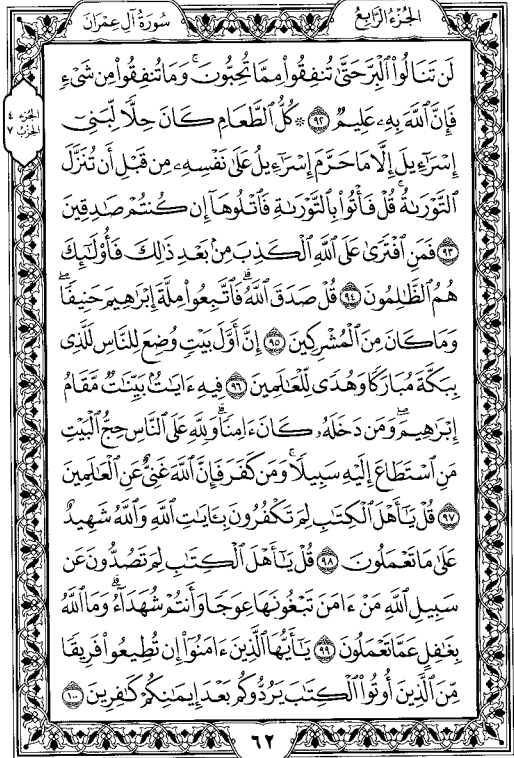 الجُزْءُ الرَّابِعُ
سُورَةُ آلِ عِمْرَانَ
لَن تَنَالُوا۟ ٱلْبِرَّ حَتَّىٰ تُنفِقُوا۟ مِمَّا تُحِبُّونَ ۚ وَمَا تُنفِقُوا۟ مِن شَىْءٍ
فَإِنَّ ٱللَّهَ بِهِۦ عَلِيمٌ ﴿٩٢﴾ ۞ كُلُّ ٱلطَّعَامِ كَانَ حِلًّا لِّبَنِىٓ
الجزء ٤
الحزب ٧
إِسْرَٰٓءِيلَ إِلَّا مَا حَرَّمَ إِسْرَٰٓءِيلُ عَلَىٰ نَفْسِهِۦ مِن قَبْلِ أَن تُنَزَّلَ
ٱلتَّوْرَىٰةُ ۗ قُلْ فَأْتُوا۟ بِٱلتَّوْرَىٰةِ فَٱتْلُوهَآ إِن كُنتُمْ صَٰدِقِينَ
﴿٩٣﴾ فَمَنِ ٱفْتَرَىٰ عَلَى ٱللَّهِ ٱلْكَذِبَ مِنۢ بَعْدِ ذَٰلِكَ فَأُو۟لَٰٓئِكَ
هُمُ ٱلظَّٰلِمُونَ ﴿٩٤﴾ قُلْ صَدَقَ ٱللَّهُ ۗ فَٱتَّبِعُوا۟ مِلَّةَ إِبْرَٰهِيمَ حَنِيفًا ۖ
وَمَا كَانَ مِنَ ٱلْمُشْرِكِينَ ﴿٩٥﴾ إِنَّ أَوَّلَ بَيْتٍ وُضِعَ لِلنَّاسِ لَلَّذِى
بِبَكَّةَ مُبَارَكًا وَهُدًى لِّلْعَٰلَمِينَ ﴿٩٦﴾ فِيهِ ءَايَٰتٌۢ بَيِّنَٰتٌ مَّقَامُ
إِبْرَٰهِيمَ ۖ وَمَن دَخَلَهُۥ كَانَ ءَامِنًا ۗ وَلِلَّهِ عَلَى ٱلنَّاسِ حِجُّ ٱلْبَيْتِ
مَنِ ٱسْتَطَاعَ إِلَيْهِ سَبِيلًا ۚ وَمَن كَفَرَ فَإِنَّ ٱللَّهَ غَنِىٌّ عَنِ ٱلْعَٰلَمِينَ
﴿٩٧﴾ قُلْ يَٰٓأَهْلَ ٱلْكِتَٰبِ لِمَ تَكْفُرُونَ بِـَٔايَٰتِ ٱللَّهِ وَٱللَّهُ شَهِيدٌ
عَلَىٰ مَا تَعْمَلُونَ ﴿٩٨﴾ قُلْ يَٰٓأَهْلَ ٱلْكِتَٰبِ لِمَ تَصُدُّونَ عَن
سَبِيلِ ٱللَّهِ مَنْ ءَامَنَ تَبْغُونَهَا عِوَجًا وَأَنتُمْ شُهَدَآءُ ۗ وَمَا ٱللَّهُ
بِغَٰفِلٍ عَمَّا تَعْمَلُونَ ﴿٩٩﴾ يَٰٓأَيُّهَا ٱلَّذِينَ ءَامَنُوٓا۟ إِن تُطِيعُوا۟ فَرِيقًا
مِّنَ ٱلَّذِينَ أُوتُوا۟ ٱلْكِتَٰبَ يَرُدُّوكُم بَعْدَ إِيمَٰنِكُمْ كَٰفِرِينَ ﴿١٠٠﴾
٦٢